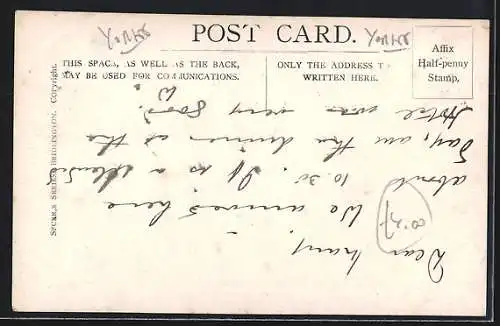 Yorks
Yorks
POST CARD.
Affix
Half-penny
Stamp.
THIS SPACE, AS WELL AS THE BACK,
MAY BE USED FOR COMMUNICATIONS.
ONLY THE ADDRESS T
WRITTEN HERE.
SPURR'S SERIES BRIDLINGTON. Copyright.
Dear
We arrived here
about 10.30. It is a
day, and the dinner at the
Hotel was very good.
W